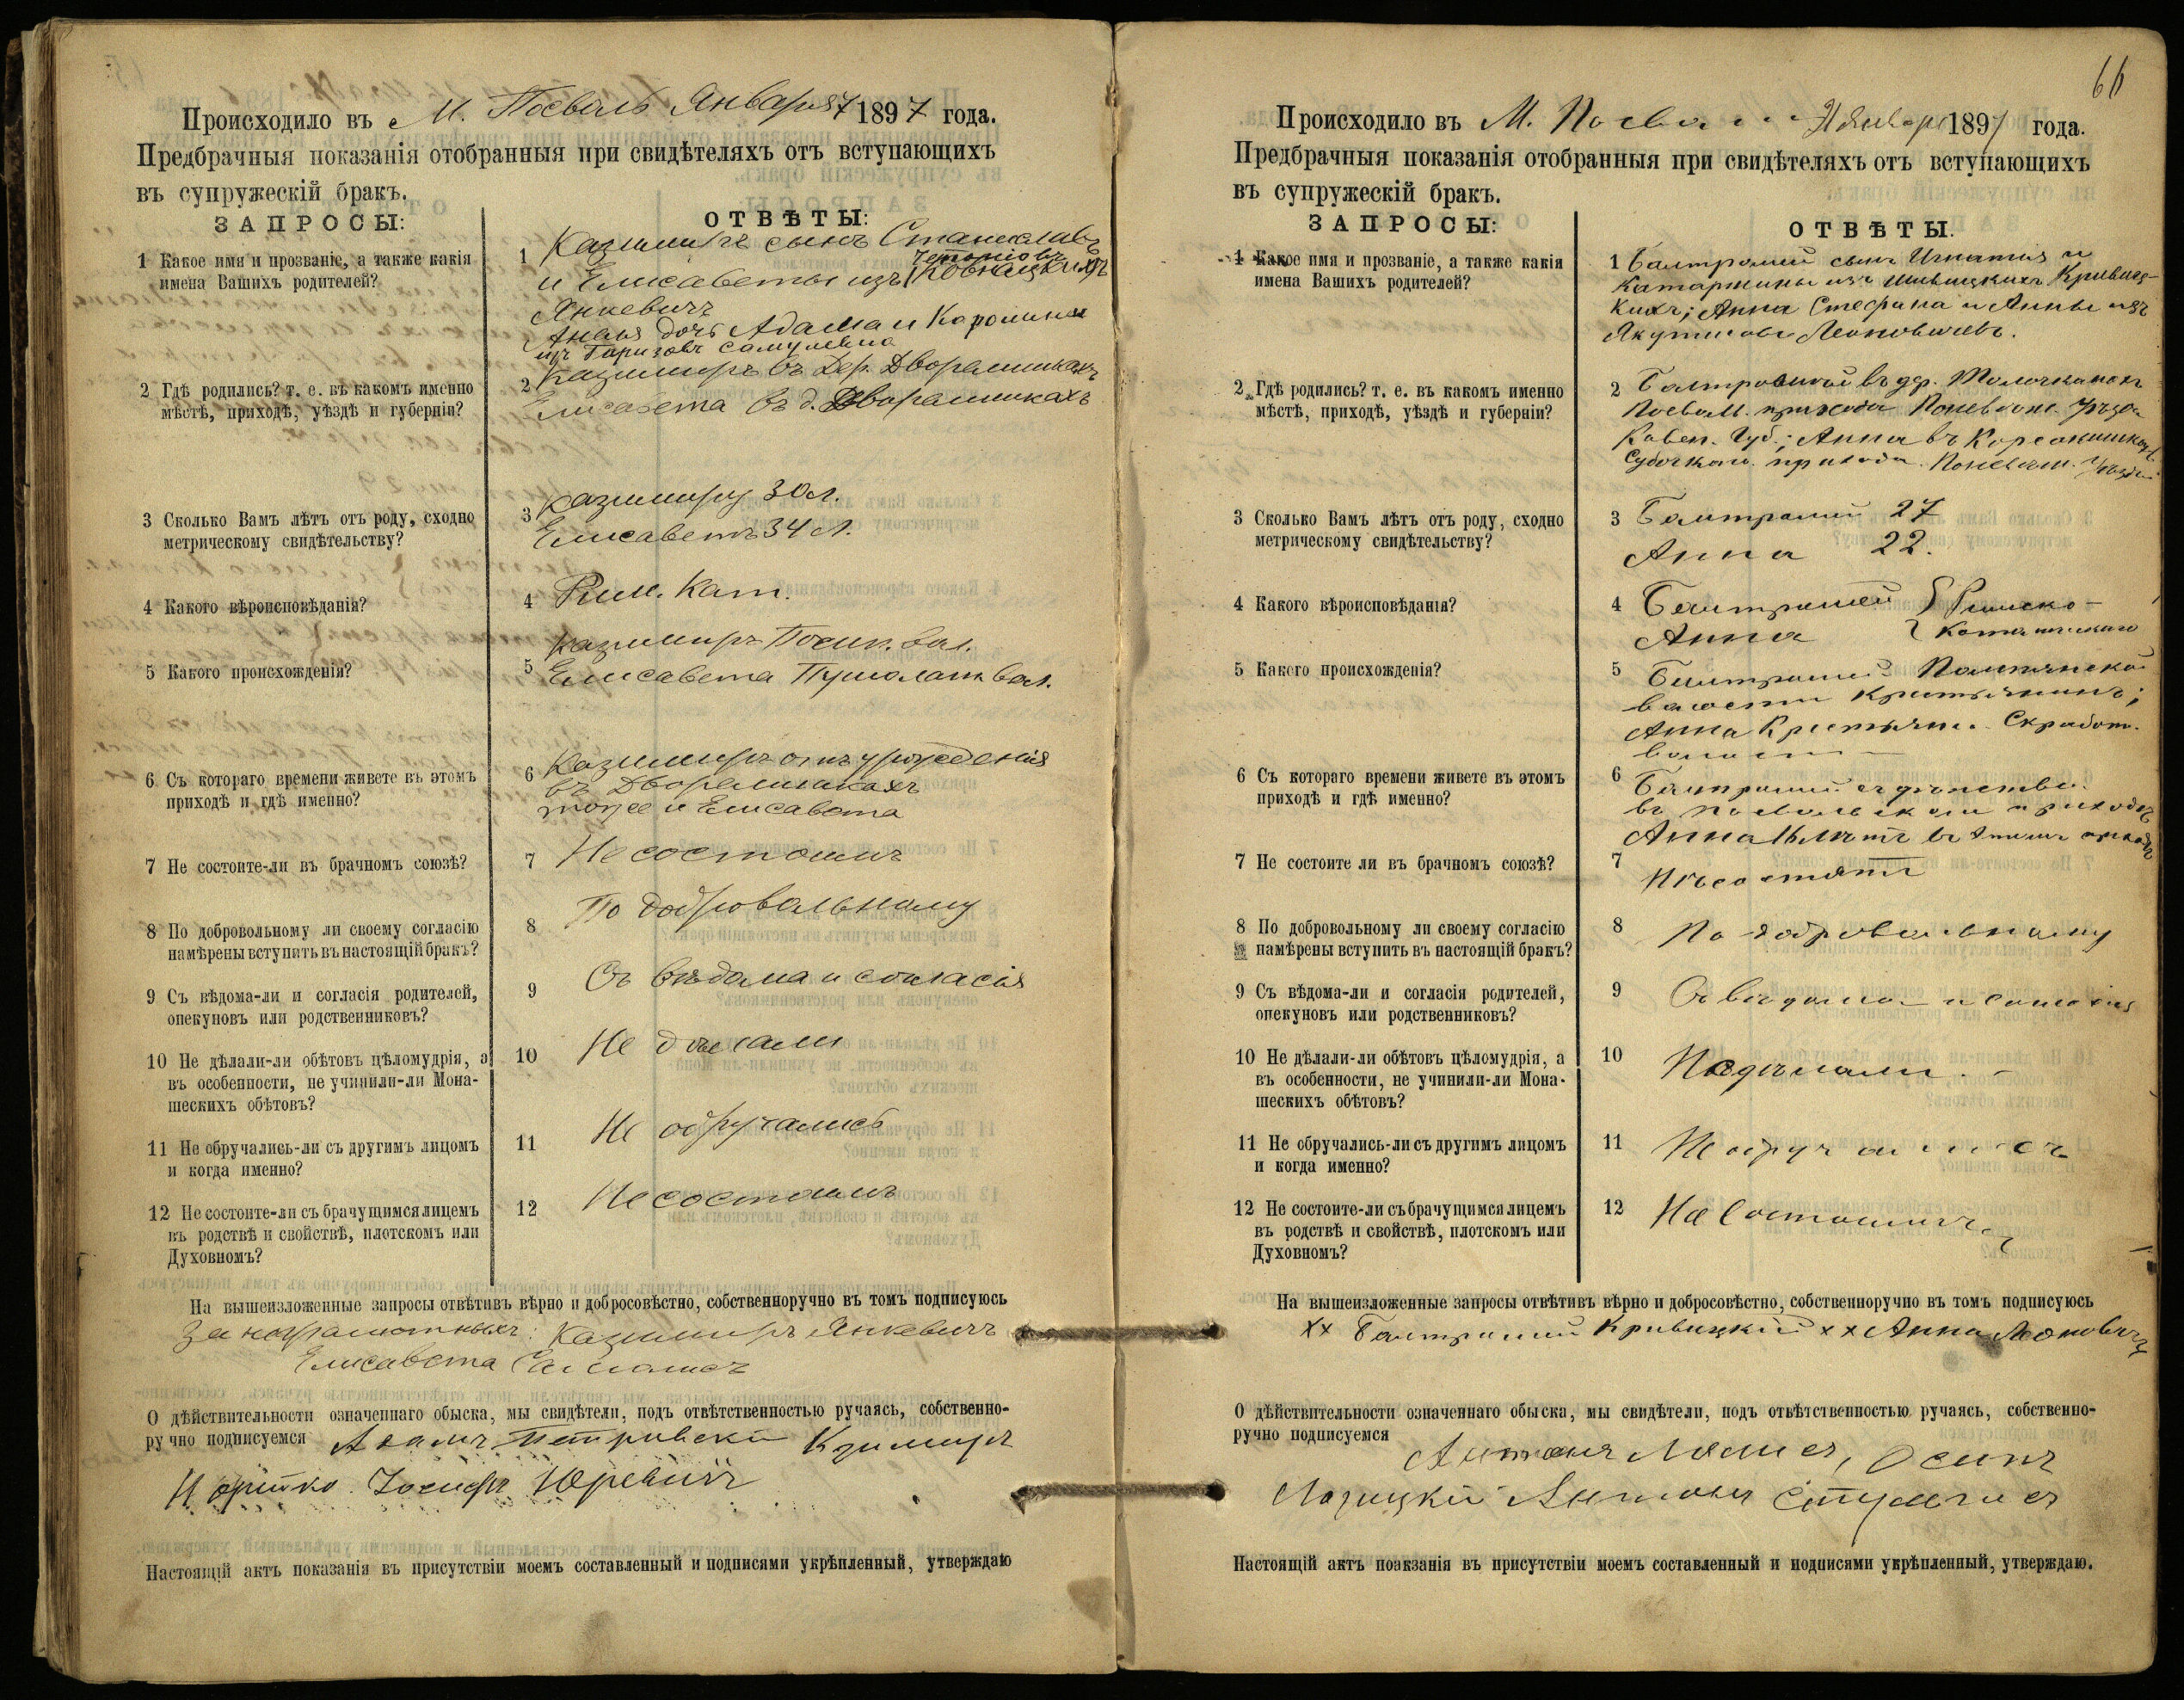 Происходило въ М. Посволь Января 7 1897 года.
Предбрачныя показанія отобранныя при свидѣтеляхъ отъ вступающихъ
въ супружескій бракъ.
ЗАПРОСЫ:
ОТВѢТЫ:
1 Какое имя и прозваніе, а также какія
имена Вашихъ родителей?
1 Казимиръ сынъ Станислава
и Елисаветы изъ
Янкевичъ
дочь Адама и Каролины
изъ
2 Гдѣ родились? т. е. въ какомъ именно
мѣстѣ, приходѣ, уѣздѣ и губерніи?
2 Казимиръ въ дер. Дворалишкахъ
Елисавета въ д. Дворалишкахъ
3 Сколько Вамъ лѣтъ отъ роду, сходно
метрическому свидѣтельству?
3 Казимиру 30 л.
Елисаветѣ 34 л.
4 Какого вѣроисповѣданія?
4 Рим. Кат.
5 Какого происхожденія?
5 Казимиръ вол.
Елисавета вол.
6 Съ котораго времени живете въ этомъ
приходѣ и гдѣ именно?
6 Казимиръ отъ урожденія
въ Дворалишкахъ
тоже и Елисавета
7 Не состоите-ли въ брачномъ союзѣ?
7 Не состоимъ
8 По добровольному ли своему согласію
намѣрены вступить въ настоящій бракъ?
8 По добровольному
9 Съ вѣдома-ли и согласія родителей,
опекуновъ или родственниковъ?
9 Съ вѣдома и согласія
10 Не дѣлали-ли обѣтовъ цѣломудрія, а
въ особенности, не учинили-ли Мона-
шескихъ обѣтовъ?
10 Не дѣлали
11 Не обручались-ли съ другимъ лицомъ
и когда именно?
11 Не обручались
12 Не состоите-ли съ брачущимся лицемъ
въ родствѣ и свойствѣ, плотскомъ или
Духовномъ?
12 Не состоимъ
На вышеизложенные запросы отвѣтивъ вѣрно и добросовѣстно, собственноручно въ томъ подписуюсь
За неграмотныхъ: Казимиръ Янкевичъ
Елисавета
О дѣйствительности означеннаго обыска, мы свидѣтели, подъ отвѣтственностью ручаясь, собственно-
ручно подписуемся Адамъ Петровскій
Іосифъ Юревичъ
Настоящій актъ показанія въ присутствіи моемъ составленный и подписями укрѣпленный, утверждаю
66
Происходило въ М. Января 1897 года.
Предбрачныя показанія отобранныя при свидѣтеляхъ отъ вступающихъ
въ супружескій бракъ.
ЗАПРОСЫ:
ОТВѢТЫ.
1 Какое имя и прозваніе, а также какія
имена Вашихъ родителей?
1 Балтромей сынъ Игнатія и
Катаржины изъ Кривиц-
кихъ; Анна Стефана и Анны изъ
Якутисовъ Леоновичевъ.
2 Гдѣ родились? т. е. въ какомъ именно
мѣстѣ, приходѣ, уѣздѣ и губерніи?
2 Балтромей въ дер.
Посвол. прихода Поневѣж. уѣзда
Ковен. Губ.; Анна въ
прихода Поневѣж. уѣзда
3 Сколько Вамъ лѣтъ отъ роду, сходно
метрическому свидѣтельству?
3 Балтромей 27
Анна 22.
4 Какого вѣроисповѣданія?
4 Балтромей Римско-
Анна Католическаго
5 Какого происхожденія?
5 Балтромей
волости Крестьянинъ;
Анна Крестьян. Скработ.
волости
6 Съ котораго времени живете въ этомъ
приходѣ и гдѣ именно?
6 Балтромей съ дѣтства
въ Посвольскомъ приходѣ
Анна лѣтъ въ этомъ приходѣ
7 Не состоите ли въ брачномъ союзѣ?
7 Не состоятъ
8 По добровольному ли своему согласію
намѣрены вступить въ настоящій бракъ?
8 По добровольному
9 Съ вѣдома-ли и согласія родителей,
опекуновъ или родственниковъ?
9 Съ вѣдома и согласія
10 Не дѣлали-ли обѣтовъ цѣломудрія, а
въ особенности, не учинили-ли Мона-
шескихъ обѣтовъ?
10 Не дѣлали.
11 Не обручались-ли съ другимъ лицомъ
и когда именно?
11 Не обручались
12 Не состоите-ли съ брачущимся лицемъ
въ родствѣ и свойствѣ, плотскомъ или
Духовномъ?
12 Не состоимъ
На вышеизложенные запросы отвѣтивъ вѣрно и добросовѣстно, собственноручно въ томъ подписуюсь
хх Балтромей Кривицкій хх Анна Леоновичъ
О дѣйствительности означеннаго обыска, мы свидѣтели, подъ отвѣтственностью ручаясь, собственно-
ручно подписуемся
Антонъ Осипъ
Антонъ
Настоящій актъ поакзанія въ присутствіи моемъ составленный и подписями укрѣпленный, утверждаю.